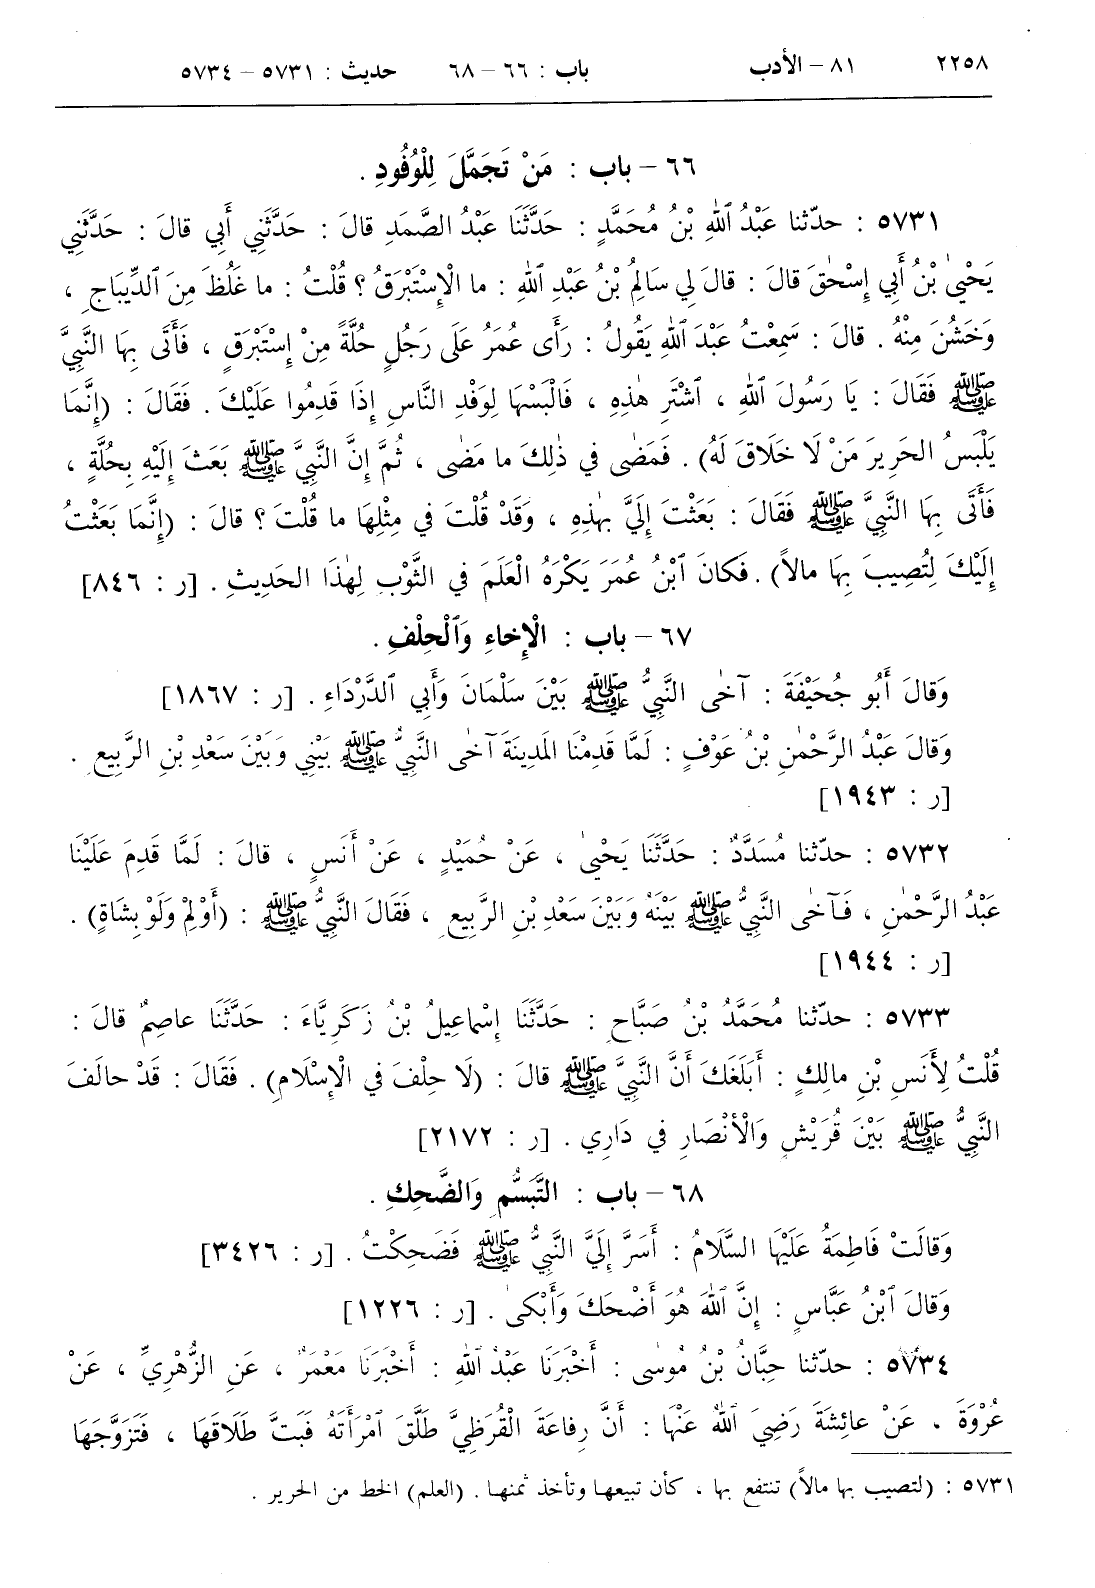 ٢٢٥٨ ٨١ – الأدب باب : ٦٦ – ٦٨ حديث : ٥٧٣١ – ٥٧٣٤
٦٦ – باب : مَنْ تَجَمَّلَ لِلْوُفُودِ .
٥٧٣١ : حدّثنا عَبْدُ ٱللهِ بْنُ مُحَمَّدٍ : حَدَّثَنَا عَبْدُ الصَّمَدِ قالَ : حَدَّثَنِي أَبِي قالَ : حَدَّثَنِي
يَحْيىٰ بْنُ أَبِي إِسْحٰقَ قالَ : قالَ لِي سَالِمُ بْنُ عَبْدِ ٱللهِ : ما الْإِسْتَبْرَقُ ؟ قُلْتُ : ما غَلُظَ مِنَ ٱلدِّيبَاجِ ،
وَخَشُنَ مِنْهُ . قالَ : سَمِعْتُ عَبْدَ ٱللهِ يَقُولُ : رَأَى عُمَرُ عَلَى رَجُلٍ حُلَّةً مِنْ إِسْتَبْرَقٍ ، فَأَتَى بِهَا النَّبِيَّ
ﷺ فَقَالَ : يَا رَسُولَ ٱللهِ ، ٱشْتَرِ هٰذِهِ ، فَٱلْبَسْهَا لِوَفْدِ النَّاسِ إِذَا قَدِمُوا عَلَيْكَ . فَقَالَ : (إِنَّمَا
يَلْبَسُ الحَرِيرَ مَنْ لَا خَلَاقَ لَهُ) . فَمَضٰى فِي ذٰلِكَ ما مَضٰى ، ثُمَّ إِنَّ النَّبِيَّ ﷺ بَعَثَ إِلَيْهِ بِحُلَّةٍ ،
فَأَتَى بِهَا النَّبِيَّ ﷺ فَقَالَ : بَعَثْتَ إِلَيَّ بِهٰذِهِ ، وَقَدْ قُلْتَ فِي مِثْلِهَا ما قُلْتَ ؟ قالَ : (إِنَّمَا بَعَثْتُ
إِلَيْكَ لِتُصِيبَ بِهَا مالاً) . فَكانَ ٱبْنُ عُمَرَ يَكْرَهُ الْعَلَمَ فِي الثَّوْبِ لِهٰذَا الحَدِيثِ . [ر : ٨٤٦]
٦٧ – باب : الْإِخاءِ وَٱلْحِلْفِ .
وَقالَ أَبُو جُحَيْفَةَ : آخٰى النَّبِيُّ ﷺ بَيْنَ سَلْمَانَ وَأَبِي ٱلدَّرْدَاءِ . [ر : ١٨٦٧]
وَقالَ عَبْدُ الرَّحْمٰنِ بْنُ عَوْفٍ : لَمَّا قَدِمْنَا المَدِينَةَ آخٰى النَّبِيُّ ﷺ بَيْنِي وَبَيْنَ سَعْدِ بْنِ الرَّبِيعِ .
[ر : ١٩٤٣]
٥٧٣٢ : حدّثنا مُسَدَّدٌ : حَدَّثَنَا يَحْيىٰ ، عَنْ حُمَيْدٍ ، عَنْ أَنَسٍ ، قالَ : لَمَّا قَدِمَ عَلَيْنَا
عَبْدُ الرَّحْمٰنِ ، فَآخٰى النَّبِيُّ ﷺ بَيْنَهُ وَبَيْنَ سَعْدِ بْنِ الرَّبِيعِ ، فَقَالَ النَّبِيُّ ﷺ : (أَوْلِمْ وَلَوْ بِشَاةٍ) .
[ر : ١٩٤٤]
٥٧٣٣ : حدّثنا مُحَمَّدُ بْنُ صَبَّاحٍ : حَدَّثَنَا إِسْماعِيلُ بْنُ زَكَرِيَّاءَ : حَدَّثَنَا عاصِمٌ قالَ :
قُلْتُ لِأَنَسِ بْنِ مالِكٍ : أَبَلَغَكَ أَنَّ النَّبِيَّ ﷺ قالَ : (لَا حِلْفَ فِي الْإِسْلَامِ) . فَقَالَ : قَدْ حالَفَ
النَّبِيُّ ﷺ بَيْنَ قُرَيْشٍ وَالْأَنْصَارِ فِي دَارِي . [ر : ٢١٧٢]
٦٨ – باب : التَّبَسُّمِ وَالضَّحِكِ .
وَقالَتْ فَاطِمَةُ عَلَيْهَا السَّلَامُ : أَسَرَّ إِلَيَّ النَّبِيُّ ﷺ فَضَحِكْتُ . [ر : ٣٤٢٦]
وَقالَ ٱبْنُ عَبَّاسٍ : إِنَّ ٱللهَ هُوَ أَضْحَكَ وَأَبْكىٰ . [ر : ١٢٢٦]
٥٧٣٤ : حدّثنا حِبَّانُ بْنُ مُوسٰى : أَخْبَرَنَا عَبْدُ ٱللهِ : أَخْبَرَنَا مَعْمَرٌ ، عَنِ الزُّهْرِيِّ ، عَنْ
عُرْوَةَ ، عَنْ عائِشَةَ رَضِيَ ٱللهُ عَنْهَا : أَنَّ رِفاعَةَ الْقُرَظِيَّ طَلَّقَ ٱمْرَأَتَهُ فَبَتَّ طَلَاقَهَا ، فَتَزَوَّجَهَا
٥٧٣١ : (لتصيب بها مالاً) تنتفع بها ، كأن تبيعها وتأخذ ثمنها . (العلم) الخط من الحرير .